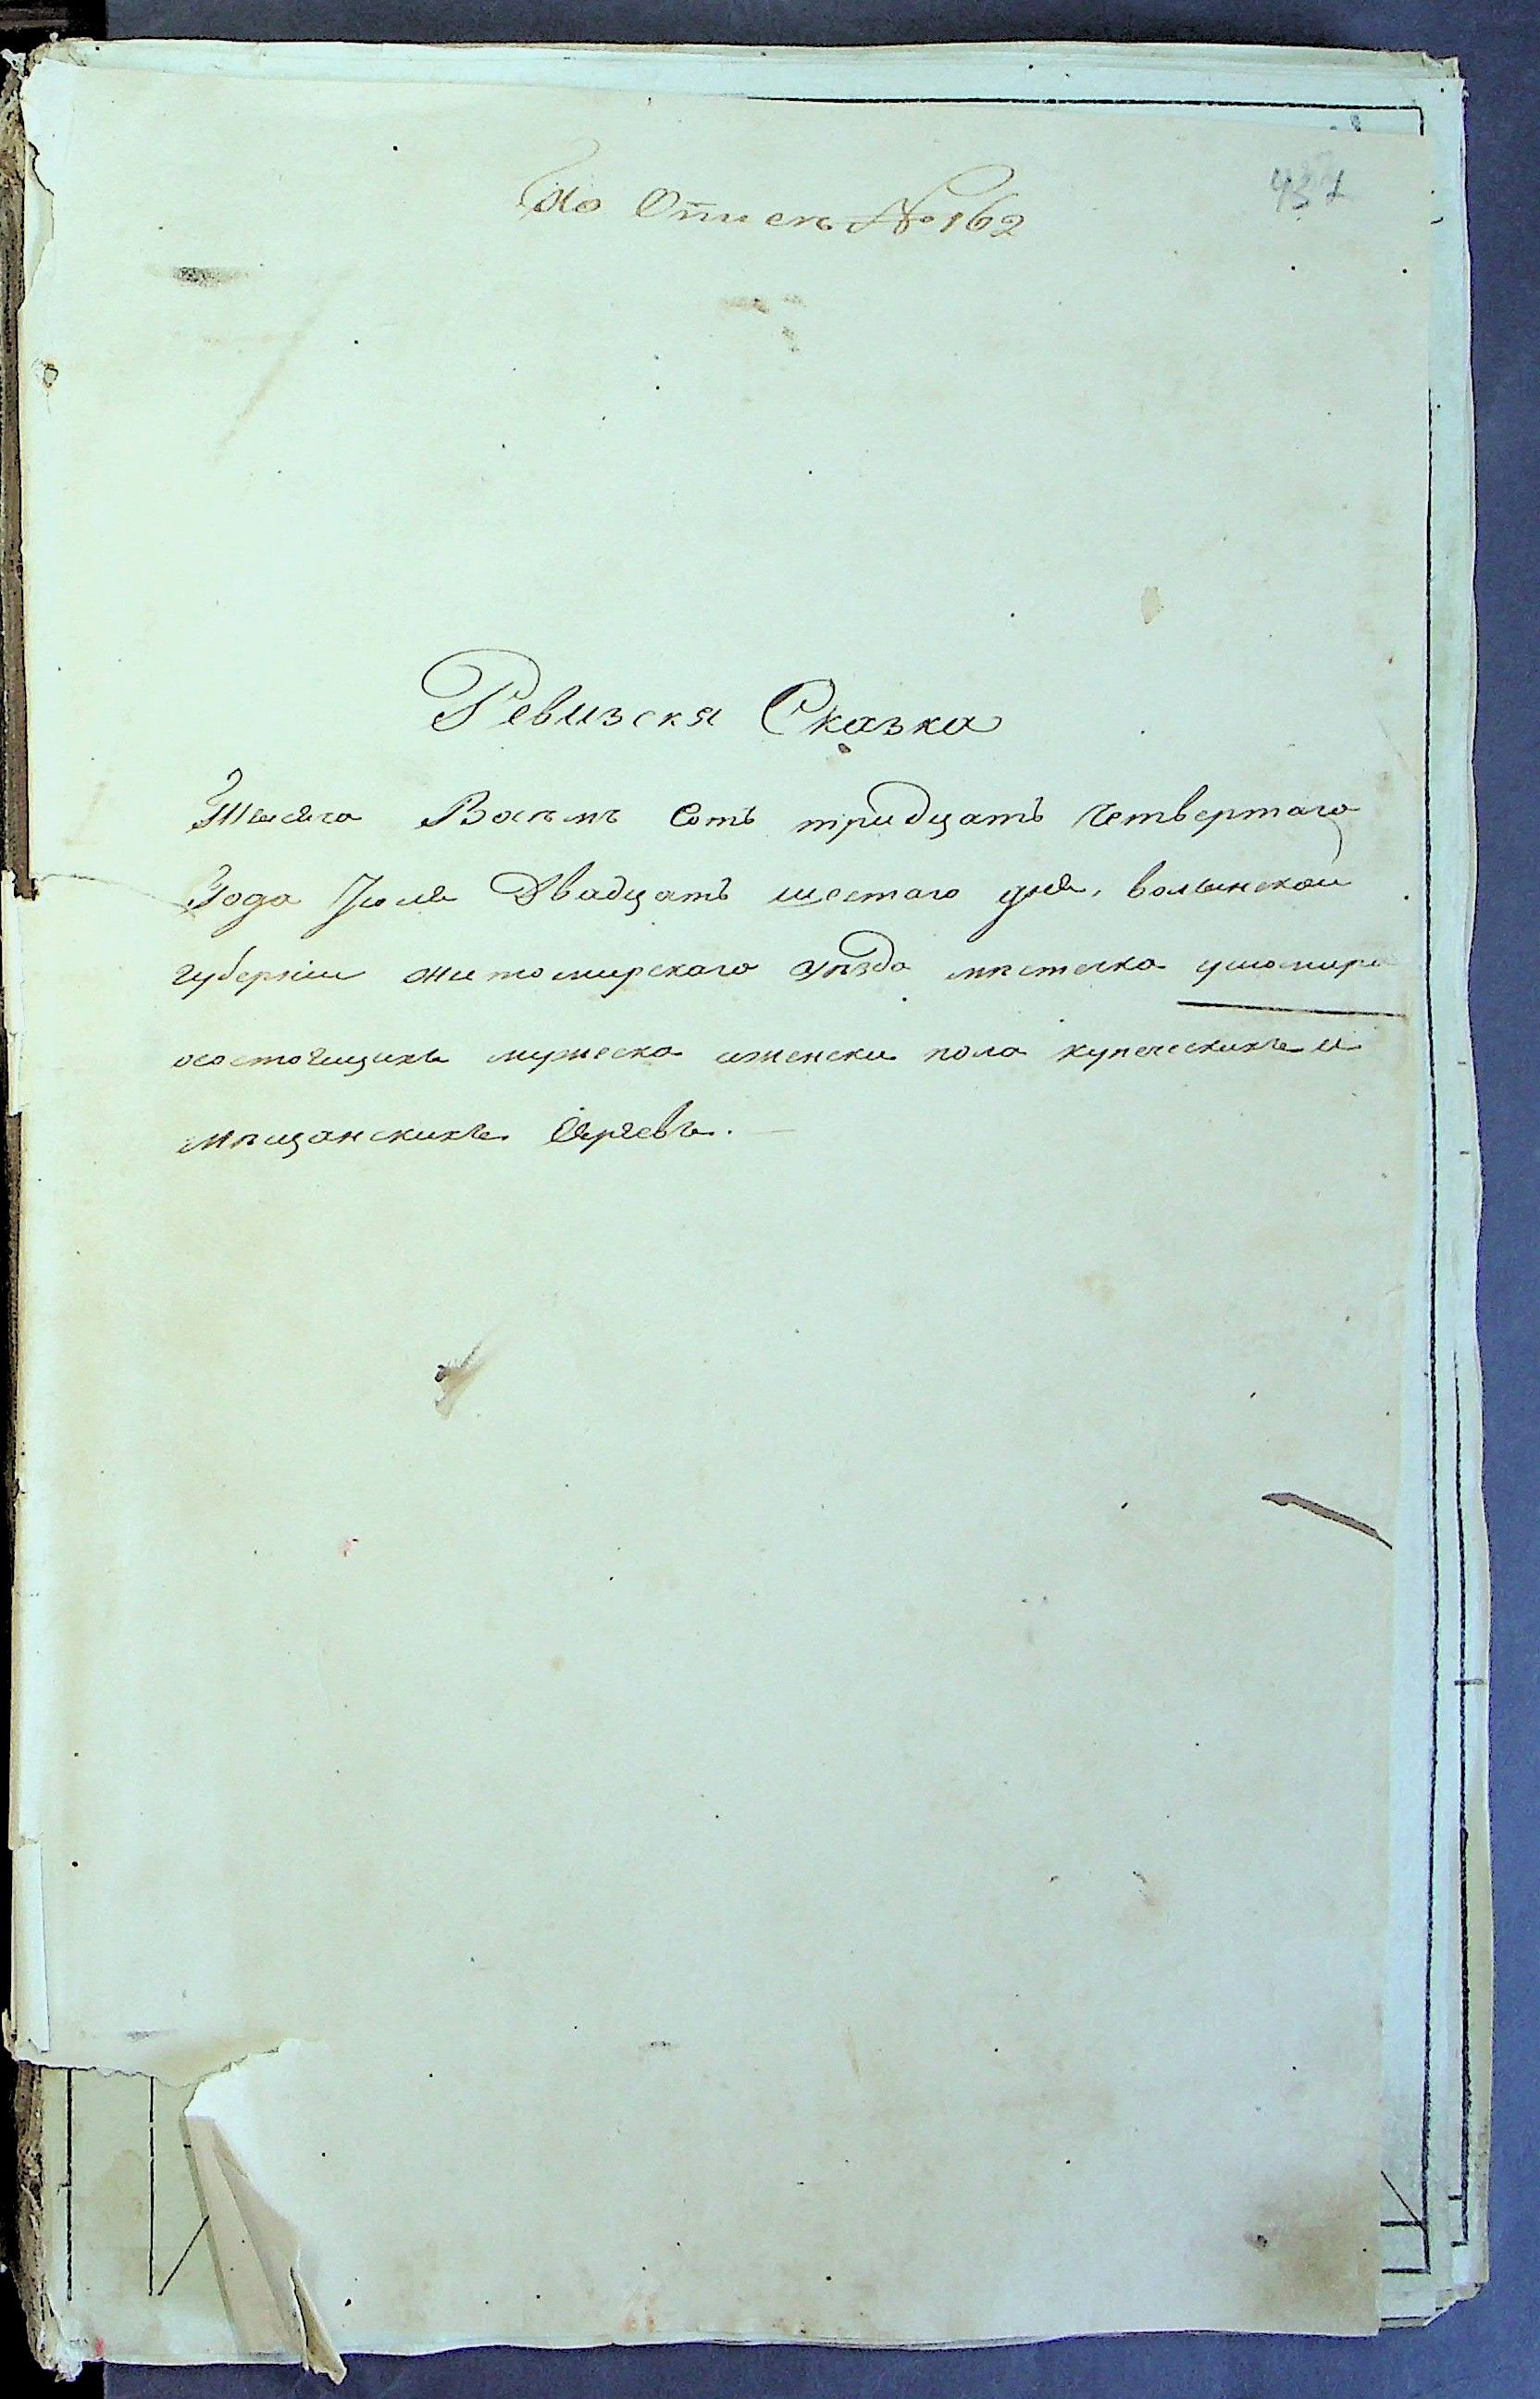 По Описѣ № 162
437
Ревизская Сказка
Тысяча Восѣмъ Сотъ тридцать Четвертаго
Года Июля Двадцать шестаго дня, волынской
губерніи житомирскаго уѣзда мѣстечка ушомира
осостоящихъ мужеска иженска пола купеческихъ и
мѣщанскихъ Евреевъ.